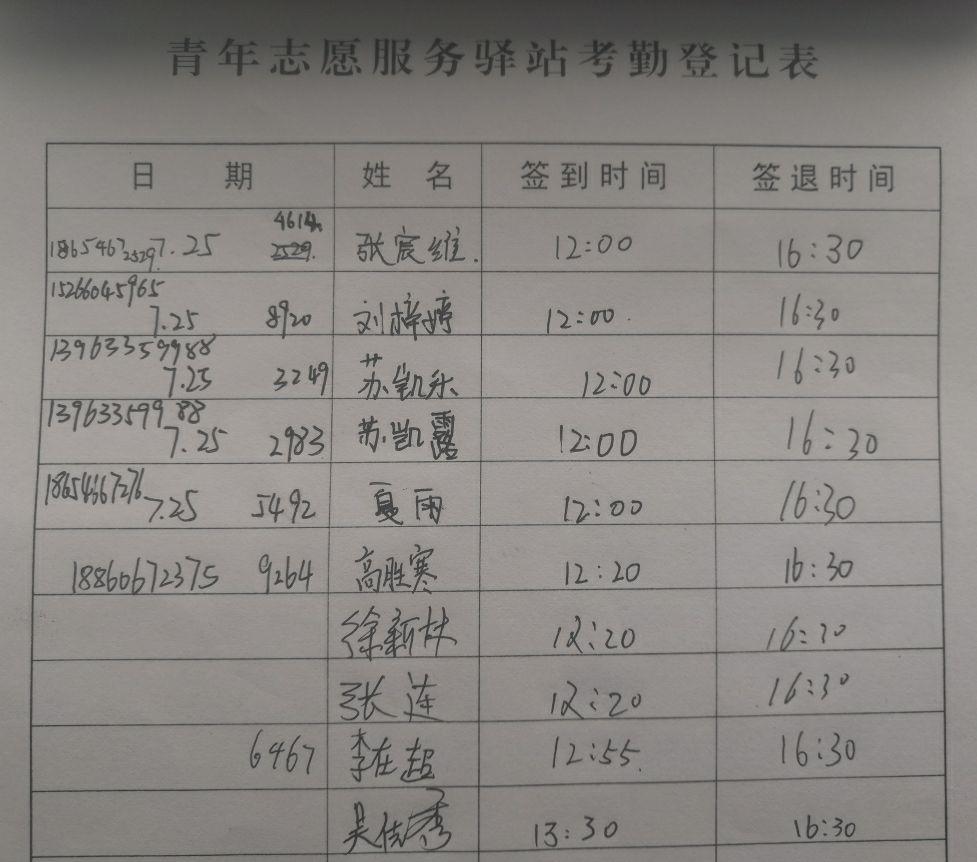 青年志愿服务驿站考勤登记表
日 期 姓 名 签到时间 签退时间
4614
18654672529 7.25 2529 张宸维. 12:00 16:30
15266045965
7.25 8920 刘梓婷 12:00 16:30
13963359988
7.25 3249 苏凯乐 12:00 16:30
13963359988
7.25 2983 苏凯露 12:00 16:30
18654667276
7.25 5492 夏雨 12:00 16:30
18860672375 9264 高胜寒 12:20 16:30
徐新林 12:20 16:30
张连 12:20 16:30
6467 李在超 12:55 16:30
吴佳秀 13:30 16:30